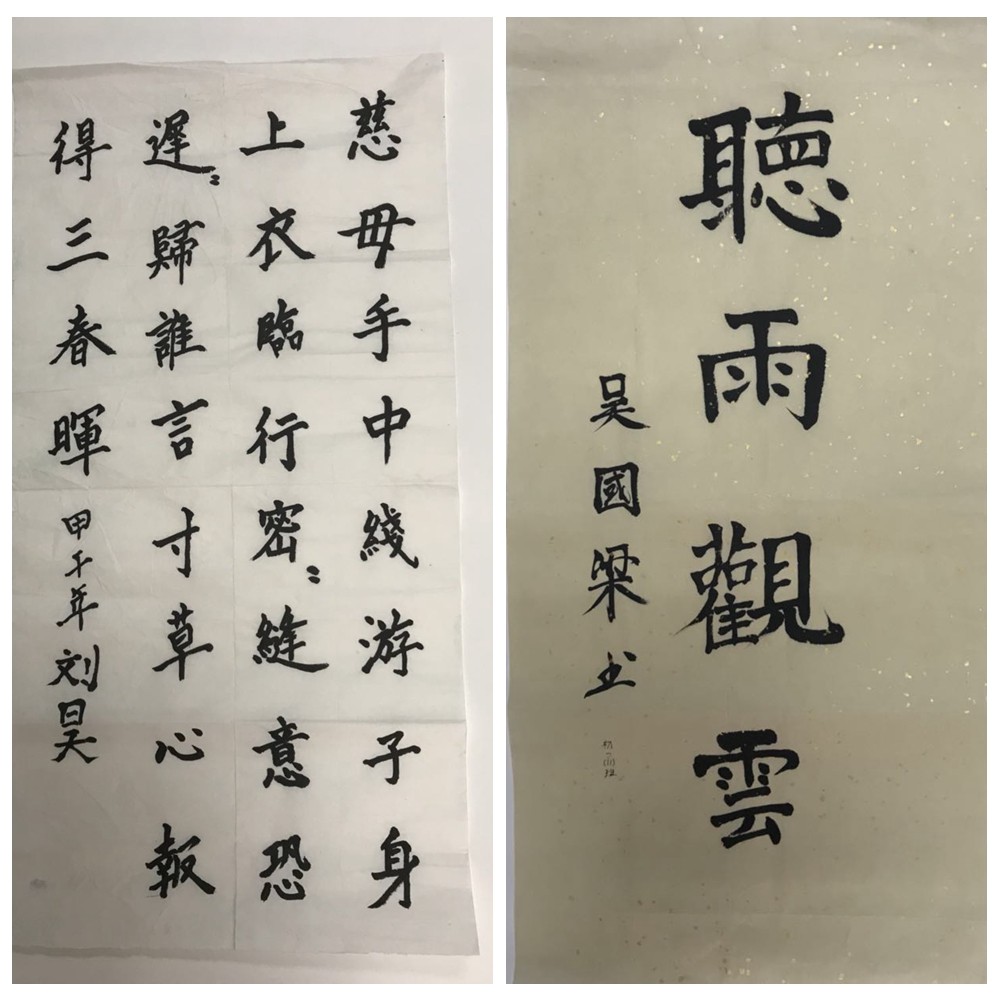 慈母手中綫游子身
上衣臨行密〻縫意恐
遲〻歸誰言寸草心報
得三春暉 甲午年 刘昊
聽雨觀雲
吳國梁书